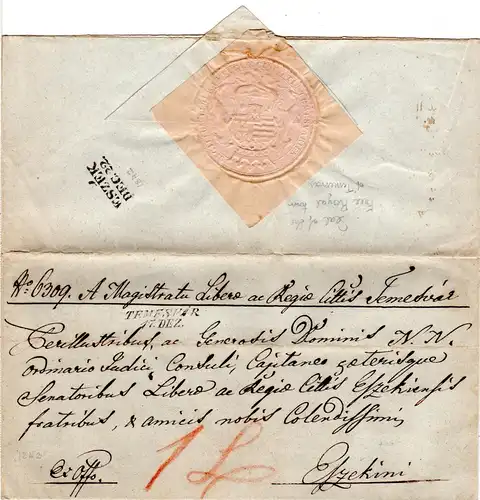 ESZÉK
DEC. 22.
Seal of the
Free Royal town
of Temesvar
No 6309. A Magistratu Liberæ ac Regiæ Cittis Temesvár
TEMESVAR
17. DEZ.
Perillustribus, ac Generosis Dominis N. N.
ordinario Judici Consuli, Capitaneo cæterisque
Senatoribus Liberæ ac Regiæ Cittis Eszekiensis
fratribus, & amicis nobis Colendissimis
Ex Offo.
Eszekini